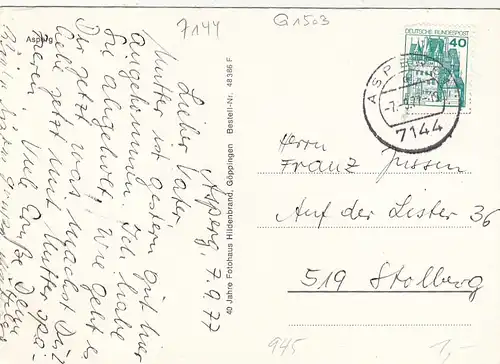 7144
G1503
Asperg
Asperg, 7.9.77
Lieber Vater,
Mutter ist gestern gut hier
angekommen. Ich habe
sie abgeholt. Wie geht es
Dir jetzt, was machst Du?
gehe jetzt mit Mutter spa-
zieren. Viele Grüße Dein
40 Jahre Fotohaus Hildenbrand, Göppingen Bestell-Nr. 48386 F
DEUTSCHE BUNDESPOST
40
ASPERG
-7.-9.77
7144
Herrn
Franz Jussen
Auf der Lester 36
519 Stolberg
945
1,-